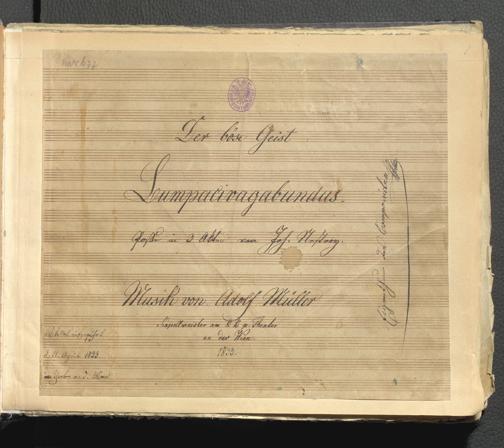 Der böse Geist
Lumpacivagabundus.
Posse in 3 Akten von Joh. Nestroy.
Musik von Adolf Müller
Kapellmeister am k. k. p. Theater
an der Wien.
1833.
d. 11. April 1833